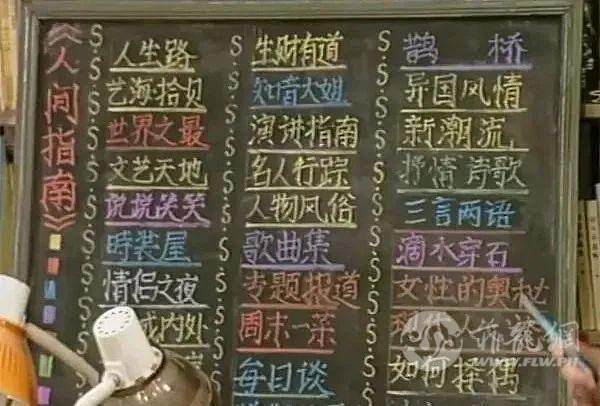 《人间指南》
人生路
艺海拾贝
世界之最
文艺天地
说说笑笑
時装屋
情侣之夜
域内外
生财有道
知音大姐
演讲指南
名人行踪
人物风俗
歌曲集
专题报道
周末一菜
每日谈
鹊 桥
异国风情
新潮流
抒情诗歌
三言两语
滴水穿石
女性的奥秘
如何择偶
菲龍網
WWW.FLW.PH